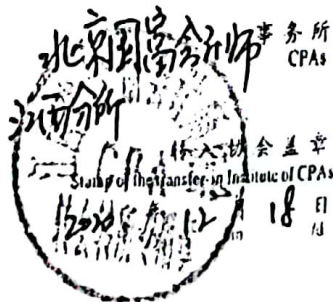 北京国富会计师事务所
CPAs
江西分所
转入协会盖章
Stamp of the transfer-in Institute of CPAs
2020年12月18日